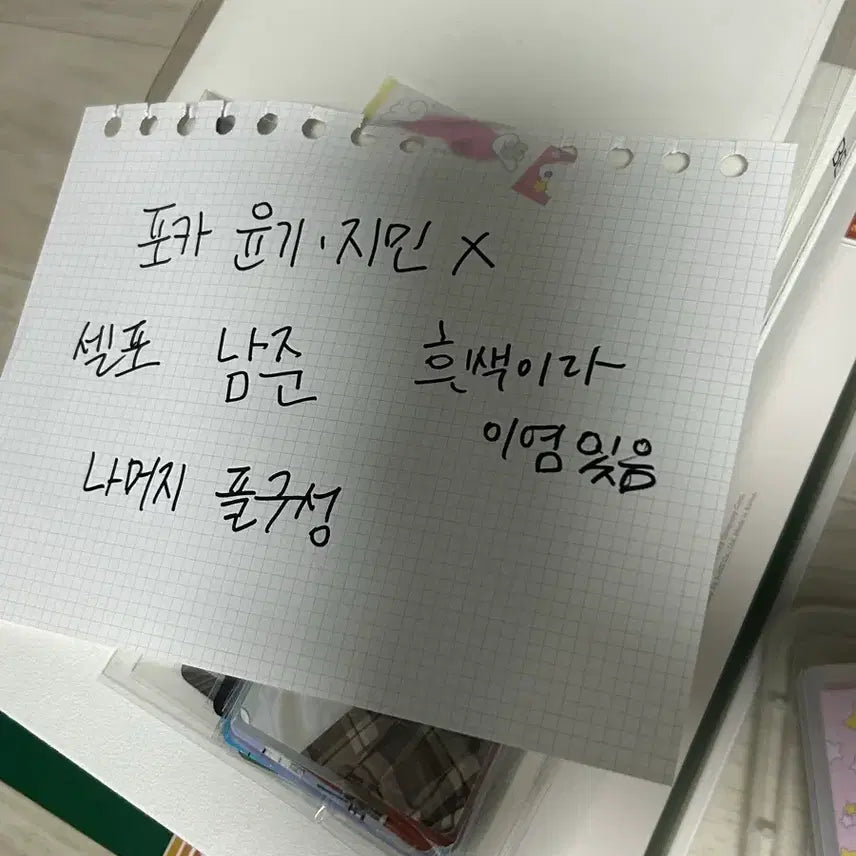 포카 윤기·지민 X
셀포 남준
흰색이라
이염 있음
나머지 풀구성